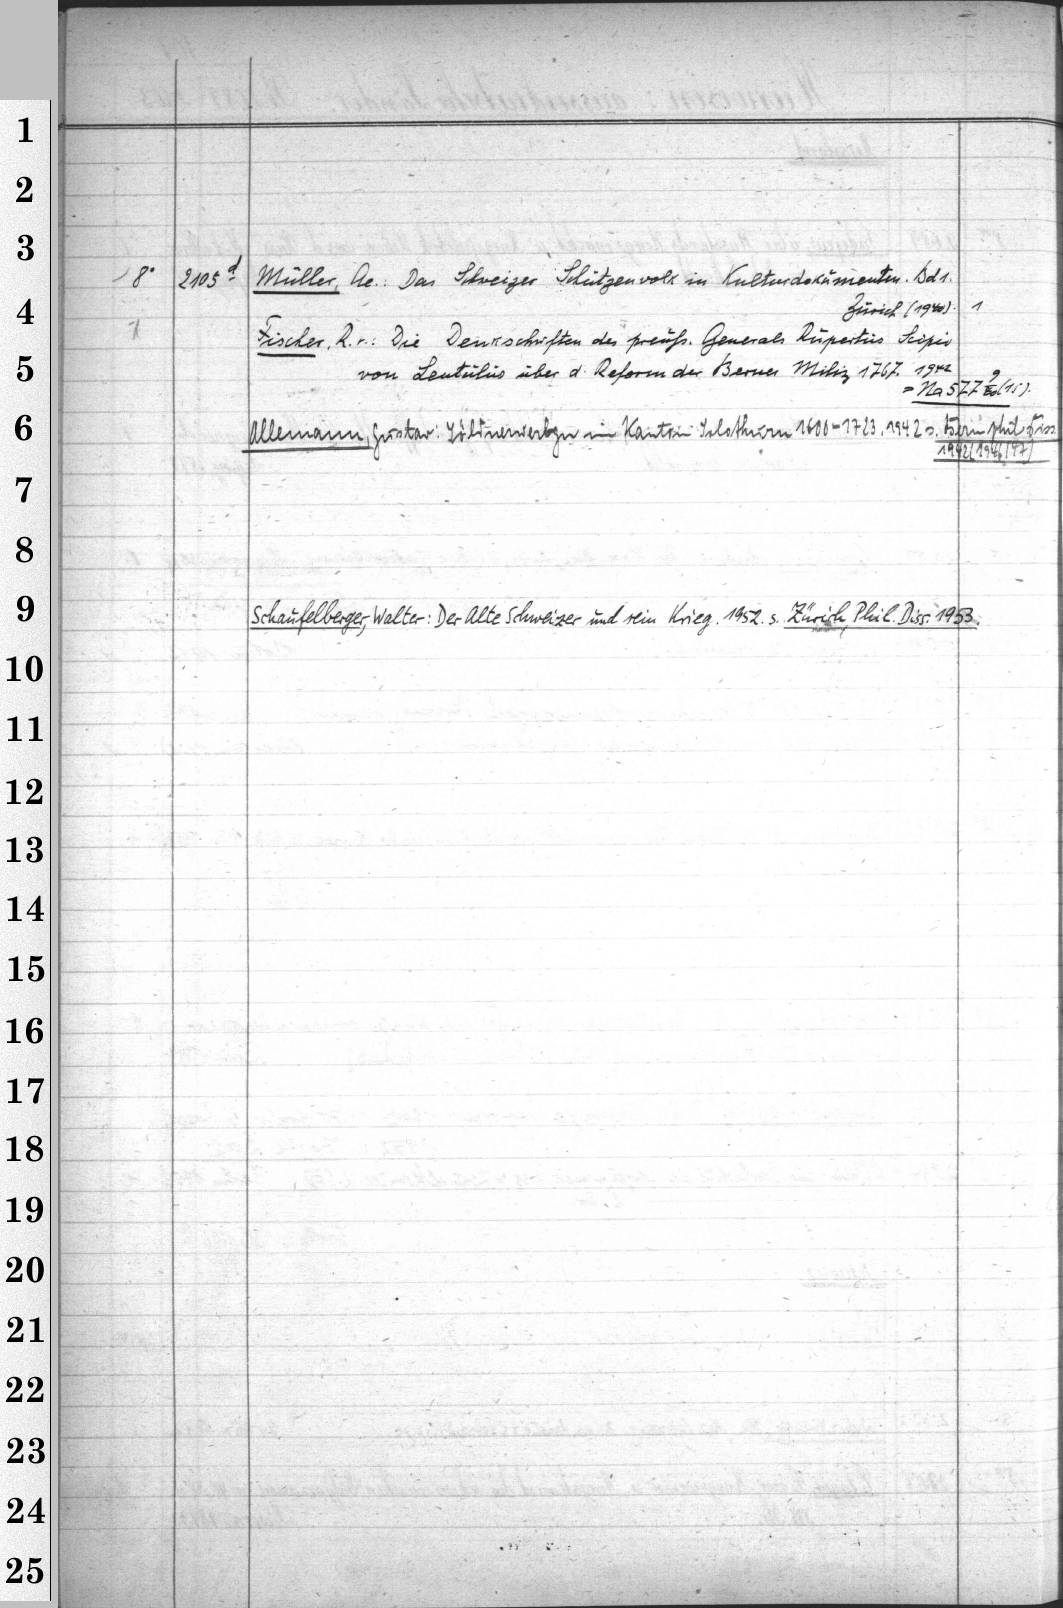 1
2
3
8° 2105 d Müller, Ae.: Das Schweizer Schützenvolk in Kulturdokumenten. Bd 1.
4
Zürich (1940). 1
Fischer, R. v.: Die Denkschriften des preuß. Generals Rupertus Scipio
5
von Lentulus über d. Reform der Berner Miliz 1767. 1942
= Na 577 (15).
6
Allemann, Gustav: Söldnerwerbgn im Kanton Solothurn 1600-1723. 1942 s. Bern phil Diss
1942
7
8
9
Schaufelberger, Walter: Der Alte Schweizer und sein Krieg. 1952. s. Zürich, Phil. Diss. 1953.
10
11
12
13
14
15
16
17
18
19
20
21
22
23
24
25